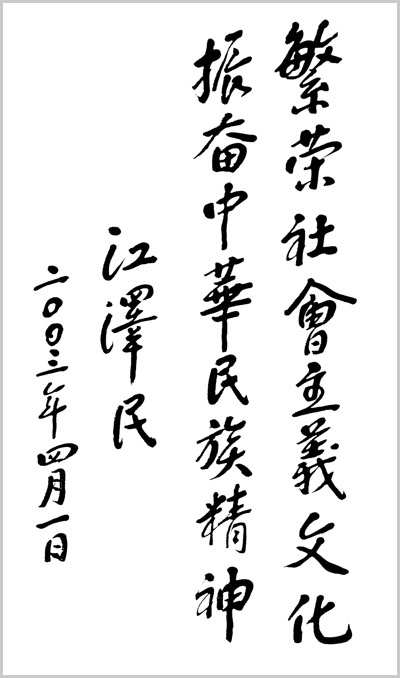 繁荣社會主義文化
振奋中華民族精神
江澤民
二〇〇三年四月一日